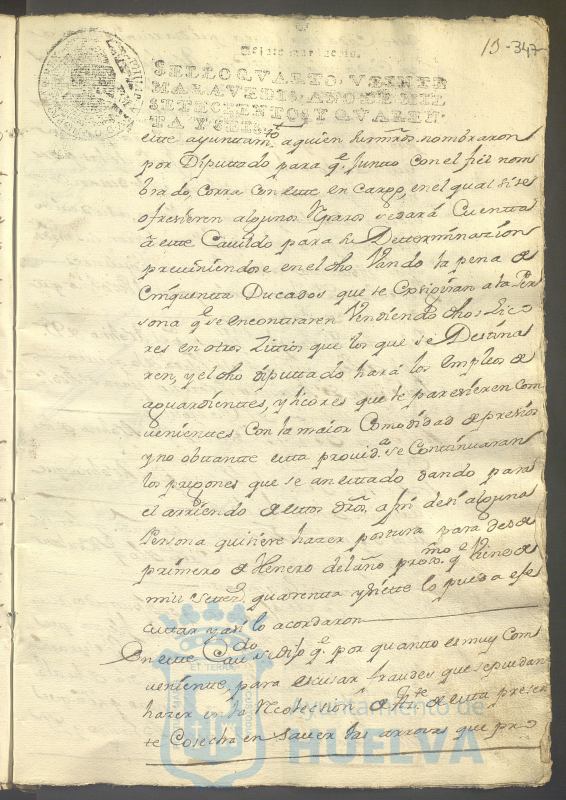 15-347
SELLO QVARTO, VEINTE
MARAVEDIS, AÑO DE MIL
SETECIENTOS Y QVAREN
TA Y SEIS.
este ayuntam.to a quien sus mrds. nombraron
por Diputtado para q.e Juntto con el fiel nom
brado, corra con este en cargo, en el qual si se
ofresieren algunos reparos se dará Cuentta
â este Cauildo para su Determinazion
preuiniendose en el dho Vando la pena de
Cinquenta Ducados que se exsigirán a la Per
sona q.e se encontraren Vendiendo dhos Lico
res en otros Sittios que los que se Destina
ren, y el dho diputtado hará los empleos de
aguardientes, y licores que le paresieren com
uenientes con la maior Comodidad de presios
y no obstante esta prouid.a se Continuaran
los pregones que se an esttado dando para
el arriendo de estos dros, a fin de si alguna
Persona quisiere hazer posttura para desde
primero de Henero del año proxmo. q.e Viene de
mill setez.s quarentta y siette lo pueda efe
cuttar y así lo acordaron
En este Cau.do se dijo q.e por quantto es muy com
ueniente, para escusar fraudes que se puedan
hazer en la Recolección de de esta presen
te Cosecha en sauer las arrouas que pro
Ayuntamiento de
HUELVA